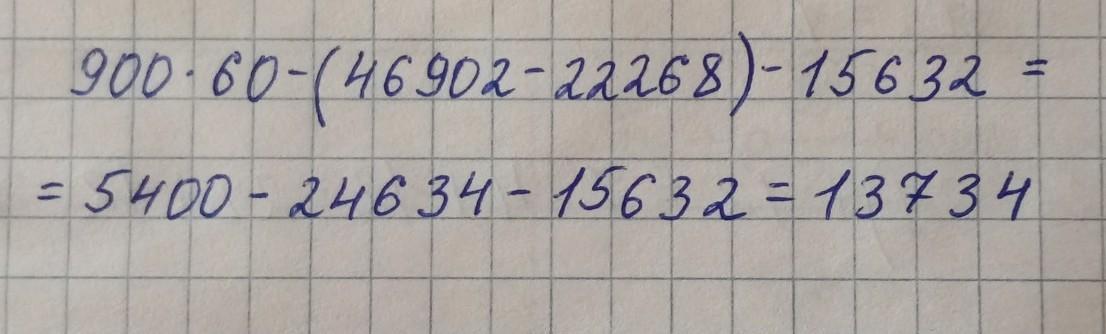 900·60-(46902-22268)-15632=
=5400-24634-15632=13734